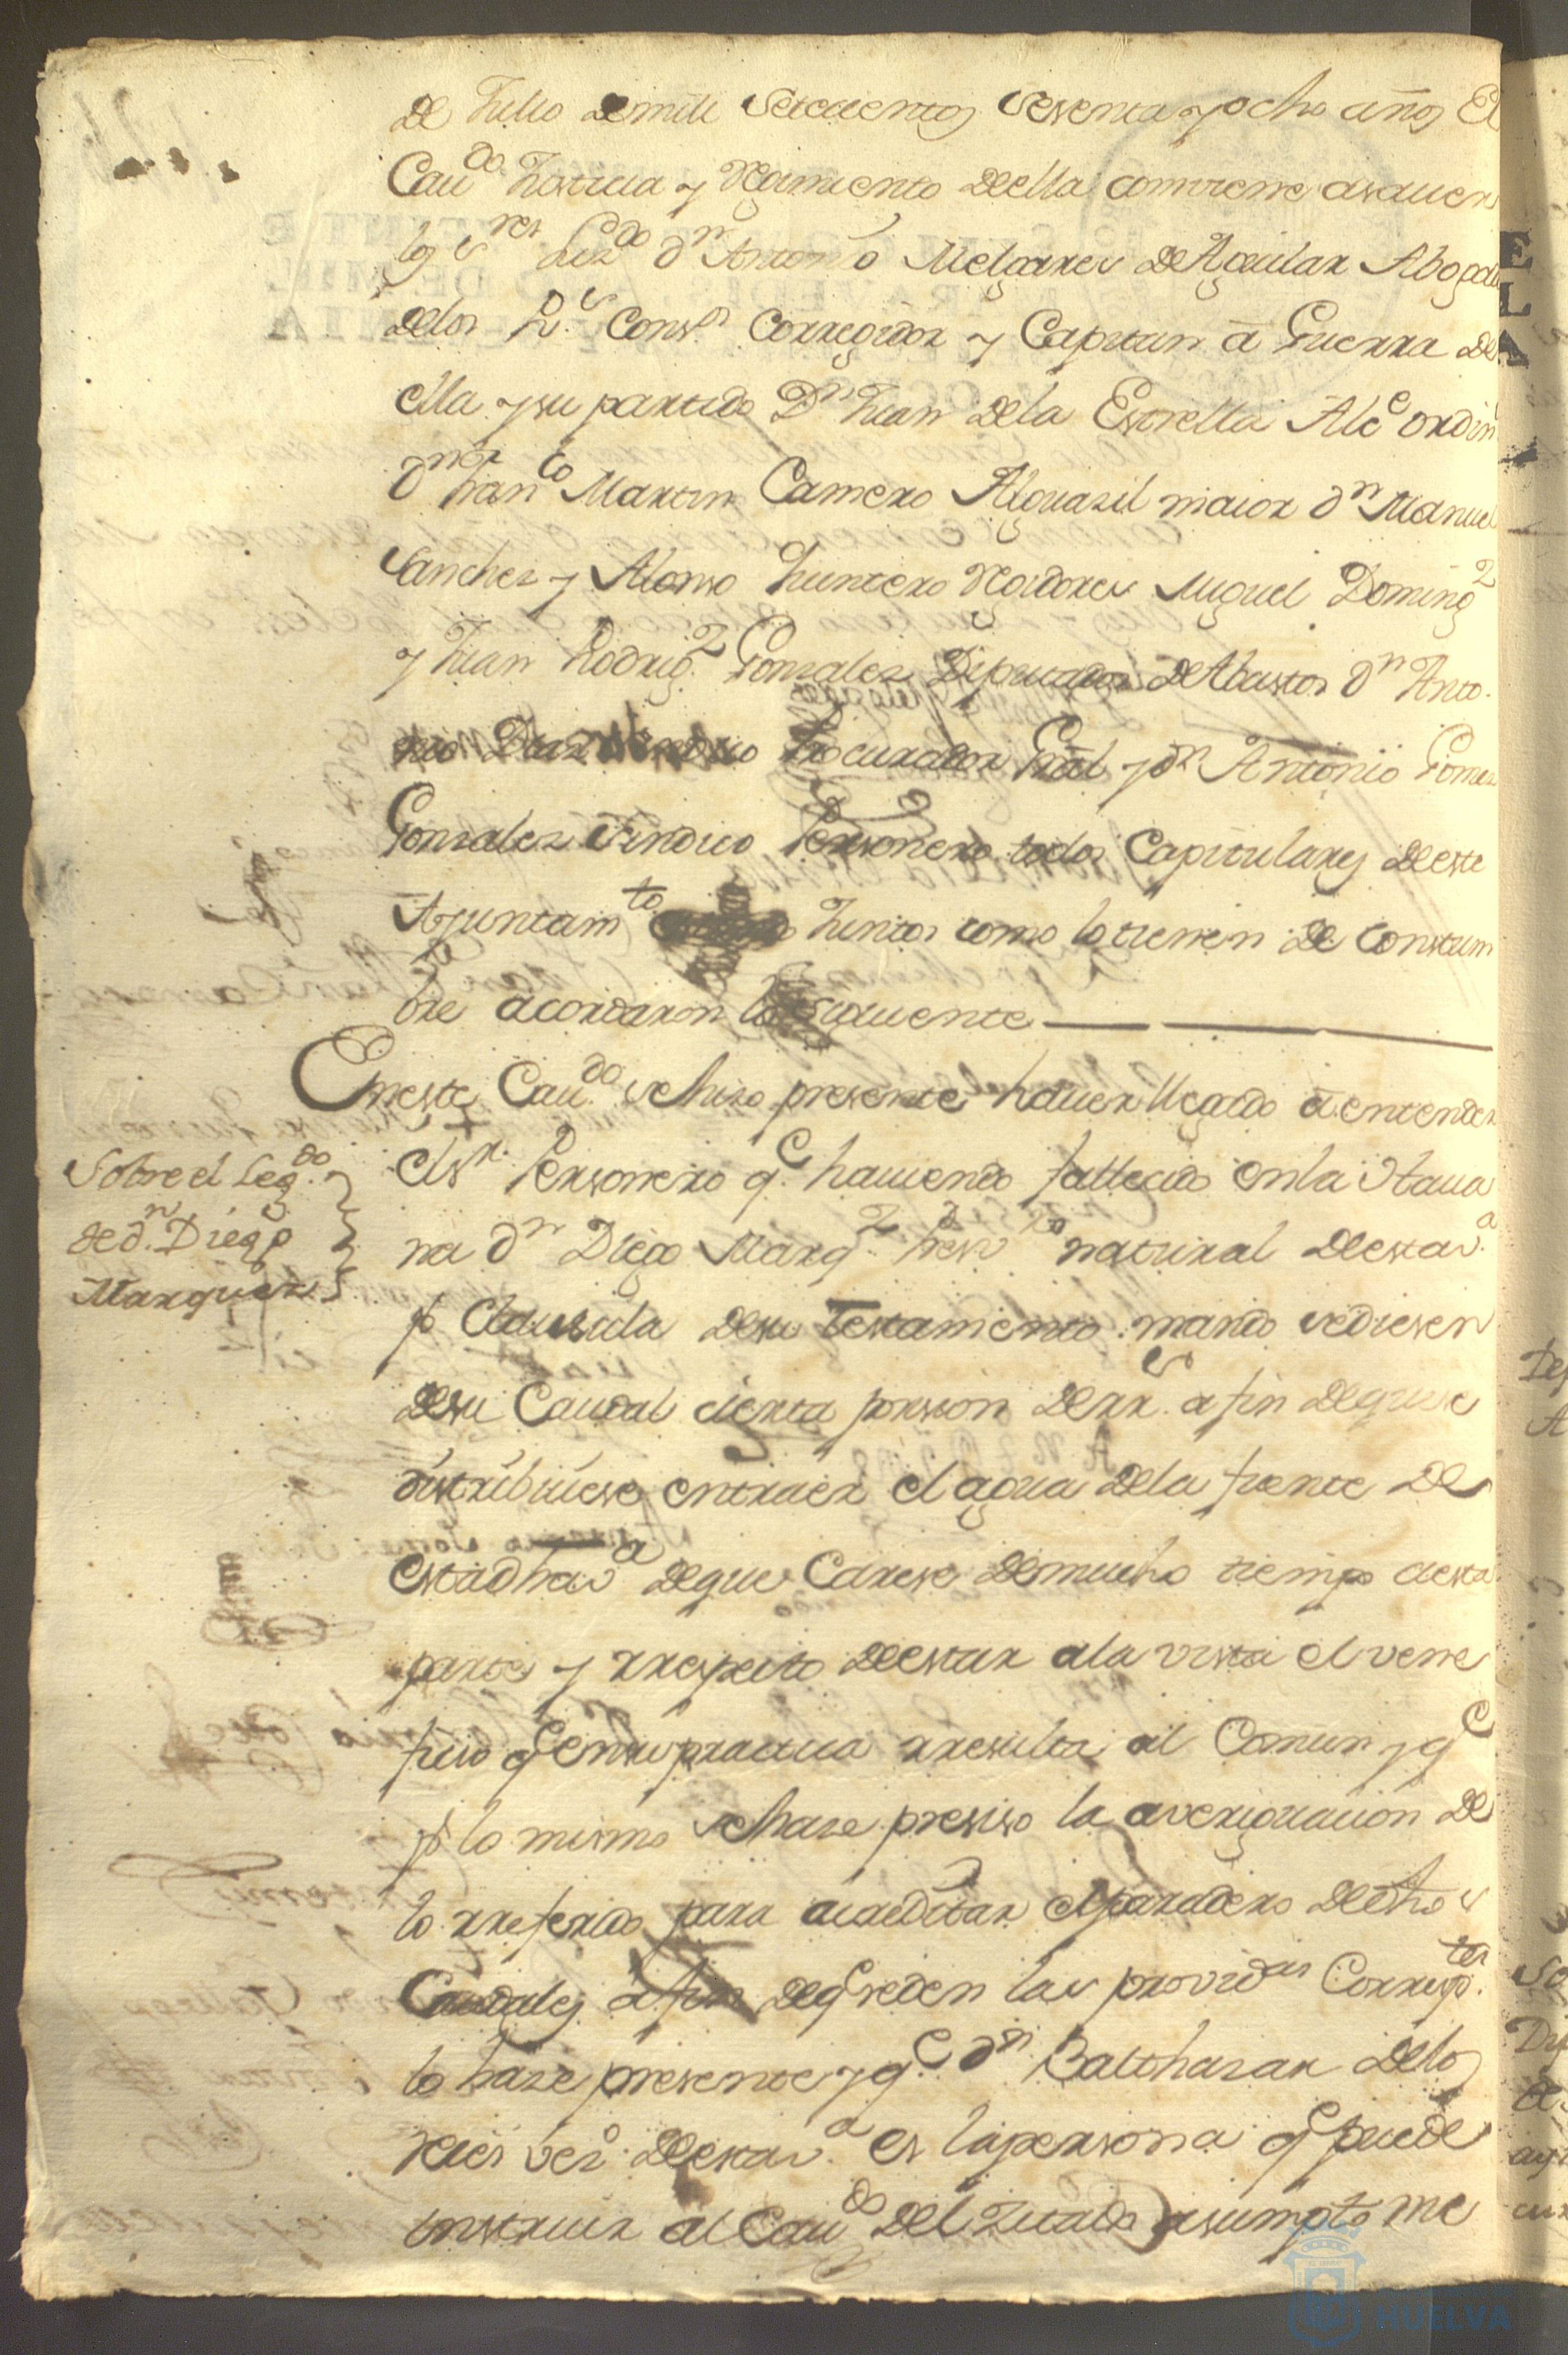 de Julio de mill Setecientos sesenta y ocho años El
Caudo Justicia y Regimiento de ella combiene a saver
los sres Lizdo dn Antonio Melgarejo de Aguilar Abogado
delos Rs Consos Corregidor y Capitan â Guerra de
ella y su partido Dn Juan de la Estrella Alce ordin
dn Franco Martin Camero Alguasil maior dn Manuel
Sanchez y Alonso Quintero Regidores Miguel Domingz
y Juan Rodrigz Gonzalez Diputados de Abastos dn Anto-
nio Diaz Procurador Gral y dn Antonio Gomez
Gonzalez Sindico Personero todos Capitulares de este
Ayuntamto Juntos como lo tienen de constum
bre acordaron lo siguiente
En este Caudo se hizo presente haver llegado â entender
el sr. Personero qe haviendo fallecido en la Hava
na dn Diego Marqz Presvro natural de esta va
p Clausula de su Testamento mando se diesen
de su Caudal cierta porsion de rrs a fin de que se
distribuiese en traer el agua de la fuente de
esta dha va de que Carese de mucho tiempo a esta
parte y rrespecto de estar a la vista el vene
ficio qe en su practica rresulta al Comun y qe
p lo mismo se hase presiso la averiguacion de
lo rreferido para acreditar el paradero de dhos
Caudales a fin de qe se den las providas Correspotes
lo hase presente y qe dn Balthasar delos
Reies veso de esta va es la persona qe puede
instruir al Caudo del zitado asumpto me
Sobre el Legdo
de dn Diego
Marquez
HUELVA